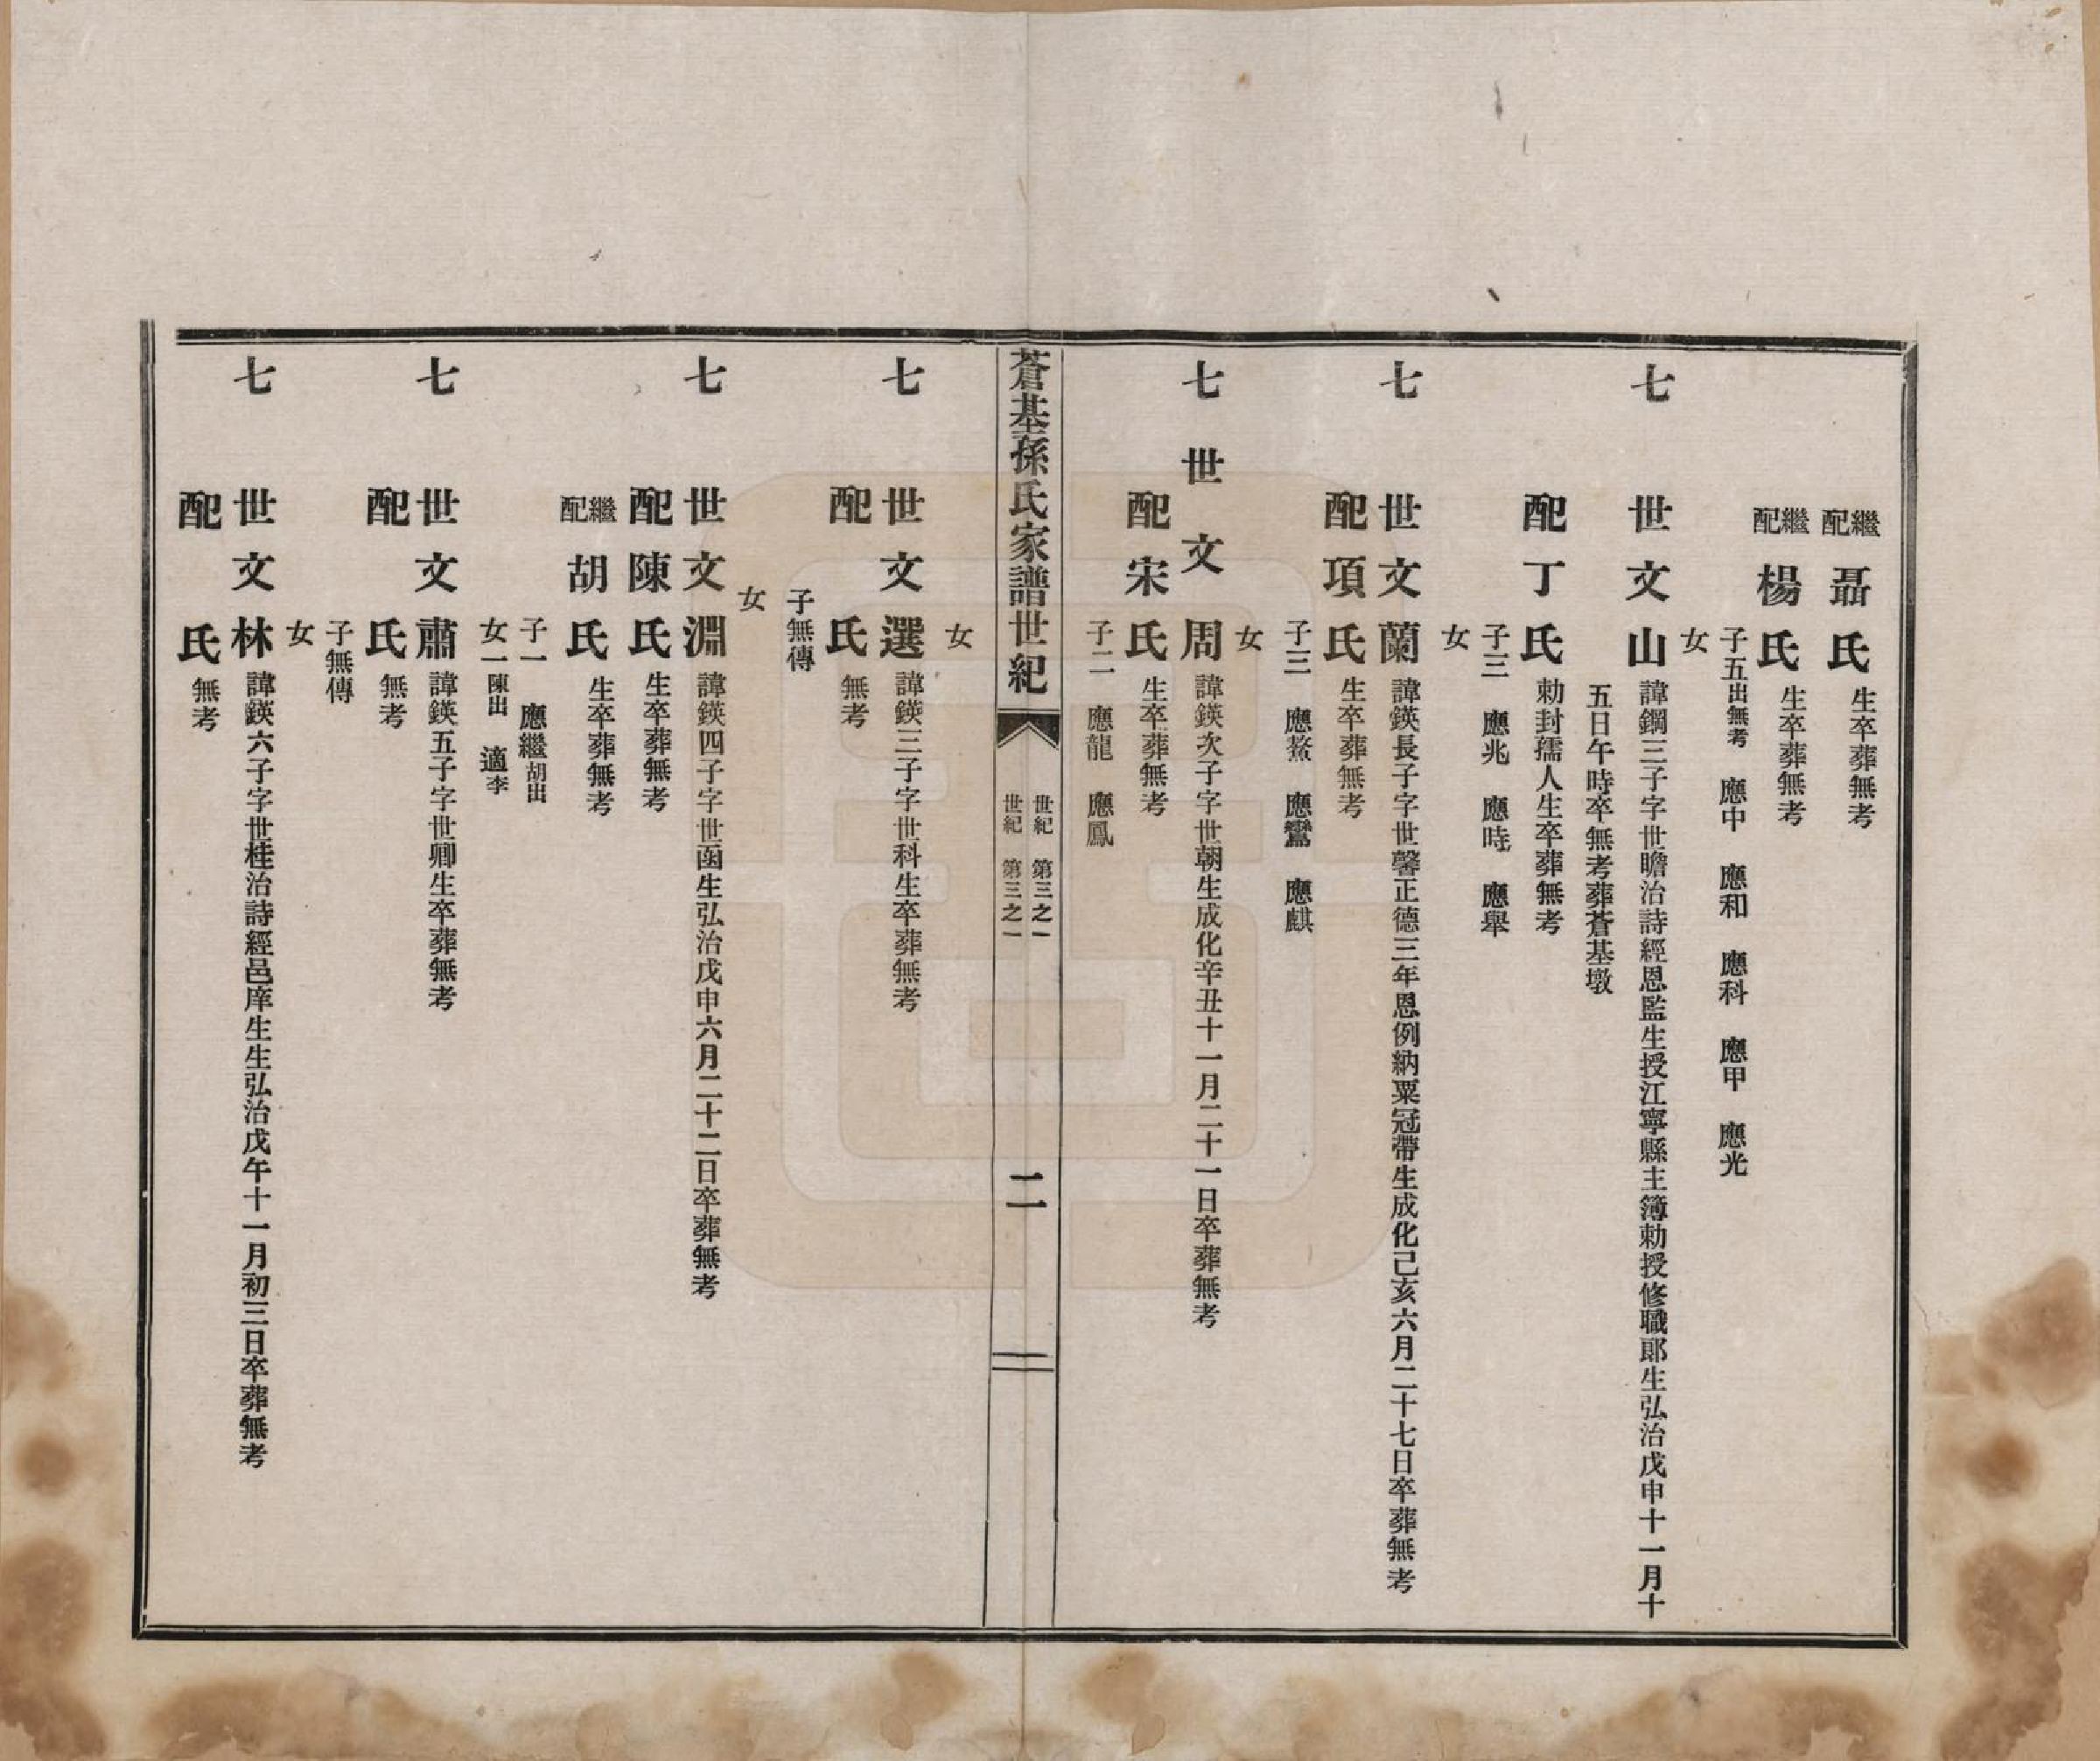 繼配 聶氏 生卒葬無考
繼配 楊氏 生卒葬無考
子五 出無考 應中 應和 應科 應甲 應光
女
七世 文山 諱鋼三子字世瞻治詩經恩監生授江寧縣主簿勅授修職郎生弘治戊申十一月十
五日午時卒無考葬蒼基墩
配丁氏 勅封孺人生卒葬無考
子三 應兆 應時 應舉
女
七世 文蘭 諱鍈長子字世馨正德三年恩例納粟冠帶生成化己亥六月二十七日卒葬無考
配項氏 生卒葬無考
子三 應鰲 應鸞 應麒
女
七世 文周 諱鍈次子字世朝生成化辛丑十一月二十一日卒葬無考
配宋氏 生卒葬無考
子二 應龍 應鳳
蒼基孫氏家譜世紀
世紀 第三之一
世紀 第三之一
二
女
七世 文選 諱鍈三子字世科生卒葬無考
配 氏 無考
子無傳
女
七世 文淵 諱鍈四子字世函生弘治戊申六月二十二日卒葬無考
配陳氏 生卒葬無考
繼配 胡氏 生卒葬無考
子一 應繼 胡出
女一 陳出 適李
七世 文肅 諱鍈五子字世卿生卒葬無考
配 氏 無考
子無傳
女
七世 文林 諱鍈六子字世桂治詩經邑庠生生弘治戊午十一月初三日卒葬無考
配 氏 無考